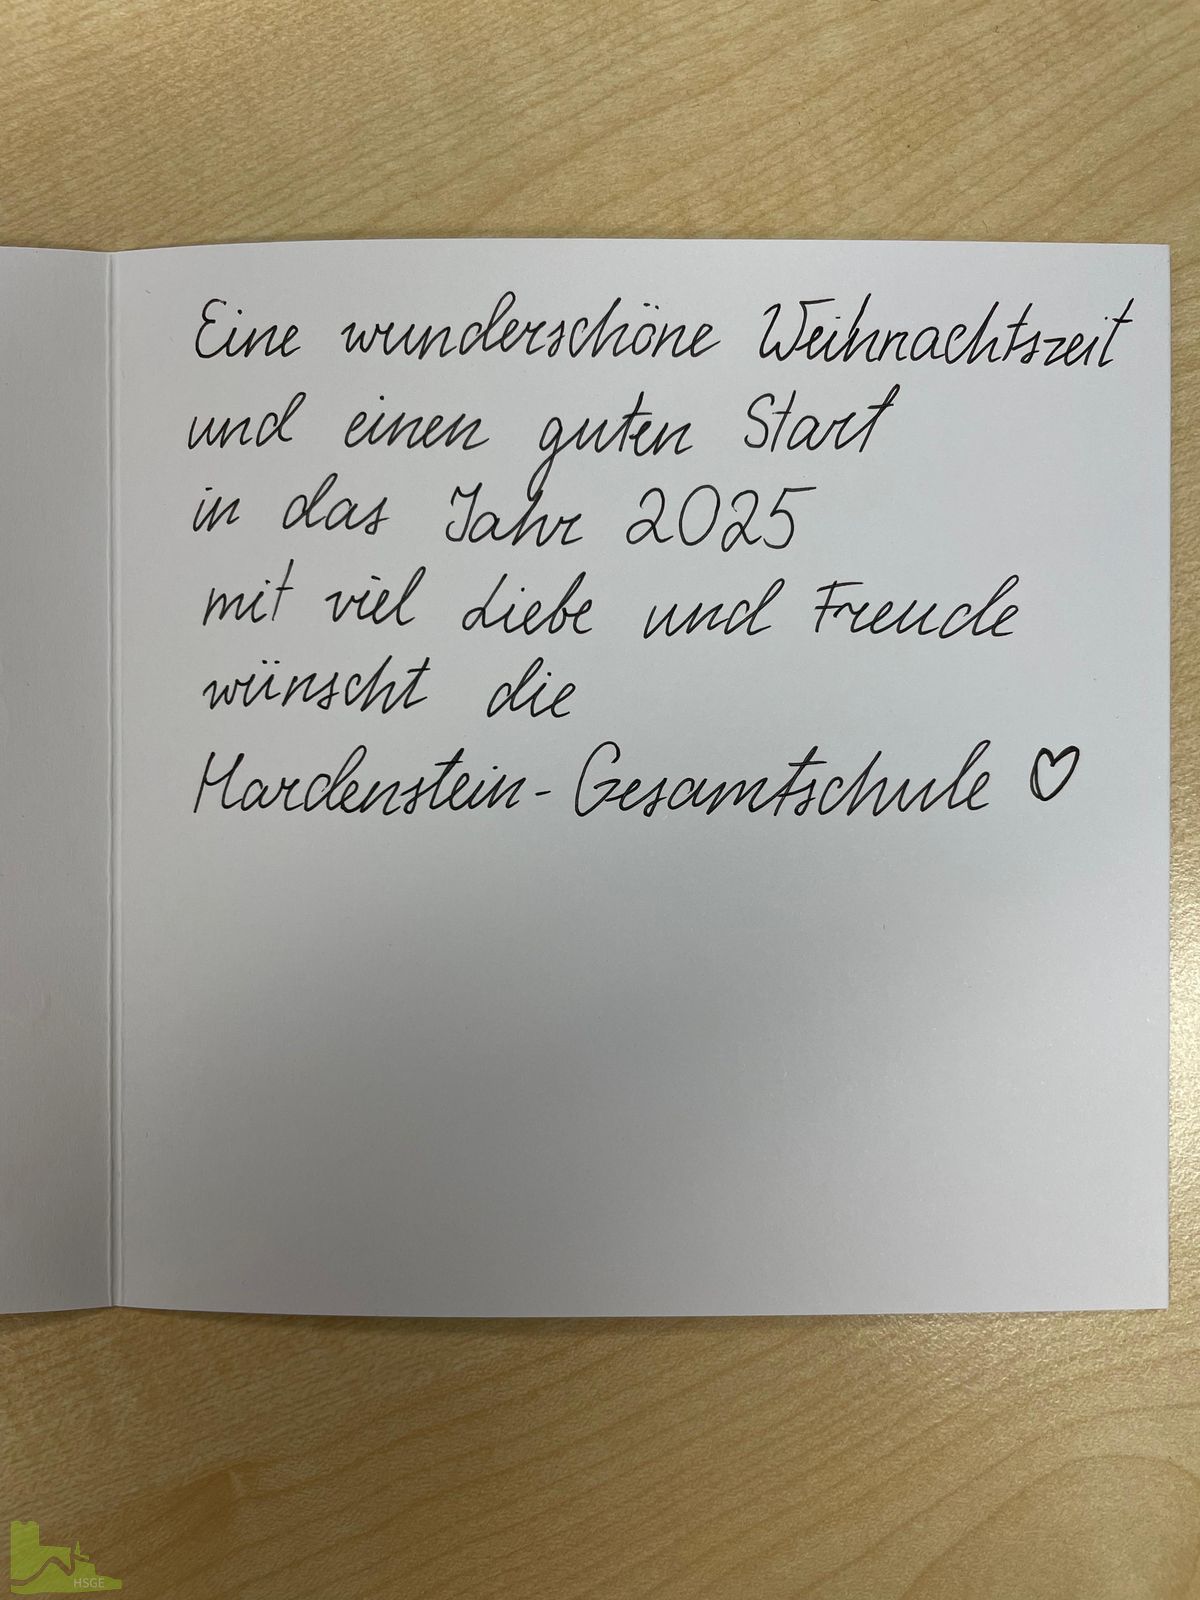 Eine wunderschöne Weihnachtszeit
und einen guten Start
in das Jahr 2025
mit viel Liebe und Freude
wünscht die
Hardenstein-Gesamtschule ♡
HSGE